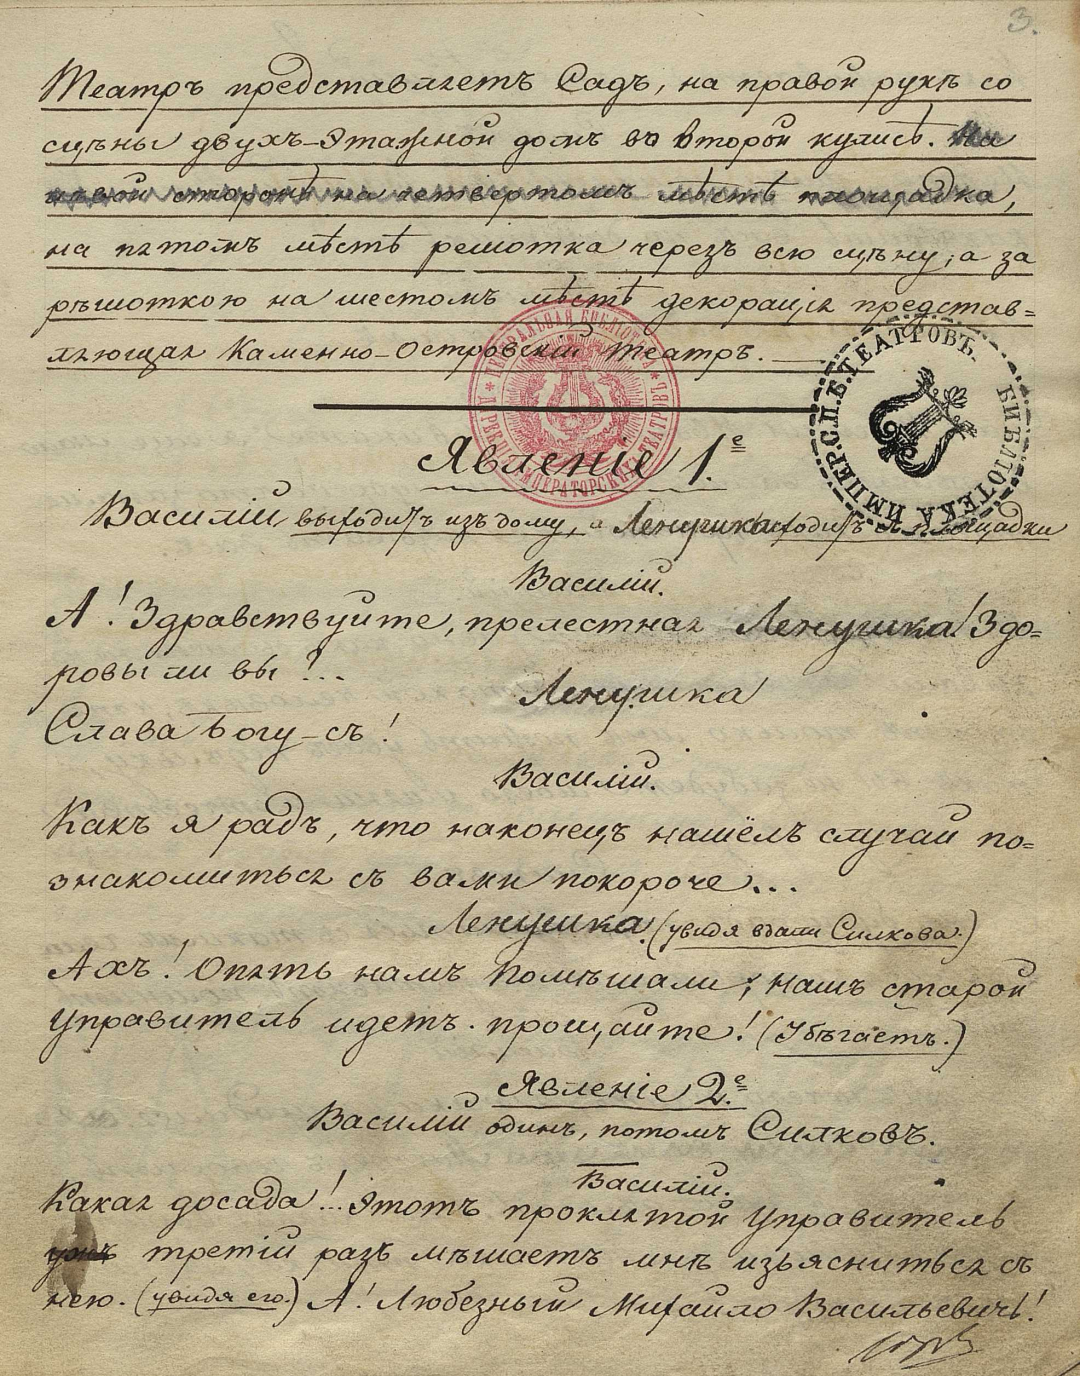 3.
Театръ представляетъ Садъ, на правой рукѣ со
сцѣны двухъ-этажной домъ во второй кулисѣ. На
лѣвой сторонѣ на четвертомъ мѣстѣ площадка,
на пятомъ мѣстѣ решотка черезъ всю сцѣну, а за
рѣшоткою на шестомъ мѣстѣ декорація представ=
ляющая Каменно-Островскій театръ.
ЦЕНТРАЛЬНАЯ БИБЛІОТЕКА
ИМПЕРАТОРСКИХЪ ТЕАТРОВЪ
ИМПЕР. С.П.Б. ТЕАТРОВЪ.
БИБЛІОТЕКА
Явленіе 1.е
Василій выходитъ изъ дому, а Ленушка выходитъ съ площадки
Василій.
А! Здравствуйте, прелестная Ленушка! Здо=
ровы ли вы?..
Ленушка
Слава Богу-съ!
Василій.
Какъ я радъ, что наконецъ нашёлъ случай по=
знакомиться съ вами покороче...
Ленушка. (увидя вдали Силкова.)
Ахъ! Опять намъ помѣшали; нашъ старой
управитель идетъ. прощайте! (Убѣгаетъ.)
Явленіе 2.е
Василій одинъ, потомъ Силковъ.
Василій.
Какая досада!.. Этотъ проклятой управитель
ужъ третій разъ мѣшаетъ мнѣ изъясниться съ
нею. (увидя его.) А! Любезный Михайло Васильевичъ!